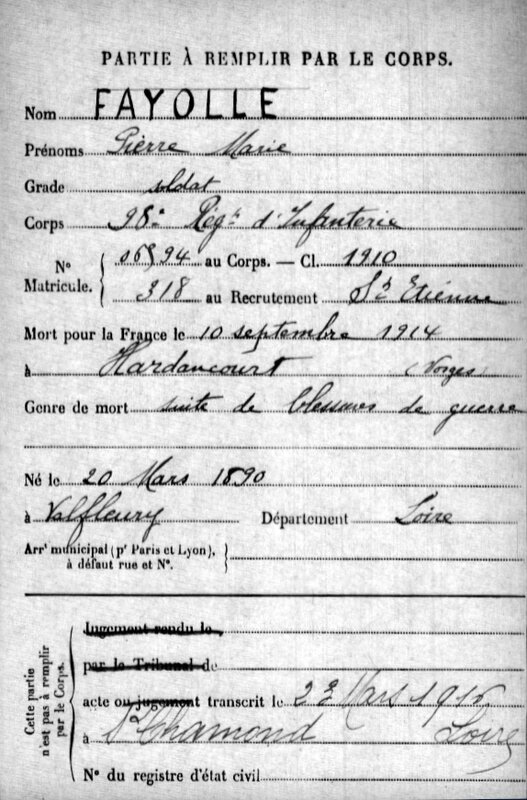 PARTIE À REMPLIR PAR LE CORPS.
Nom FAYOLLE
Prénoms Pierre Marie
Grade soldat
Corps 98e Régt d'Infanterie
N° Matricule. { au Corps. — Cl. 1910
318 au Recrutement St Etienne
Mort pour la France le 10 septembre 1914
à Hardancourt (Vosges)
Genre de mort suite de blessures de guerre
Né le 20 Mars 1890
à Valfleury Département Loire
Arrt municipal (pr Paris et Lyon), à défaut rue et N°. }
Cette partie n'est pas à remplir par le Corps. {
Jugement rendu le
par le Tribunal de
acte ou jugement transcrit le Mars
à St Chamond Loire
N° du registre d'état civil